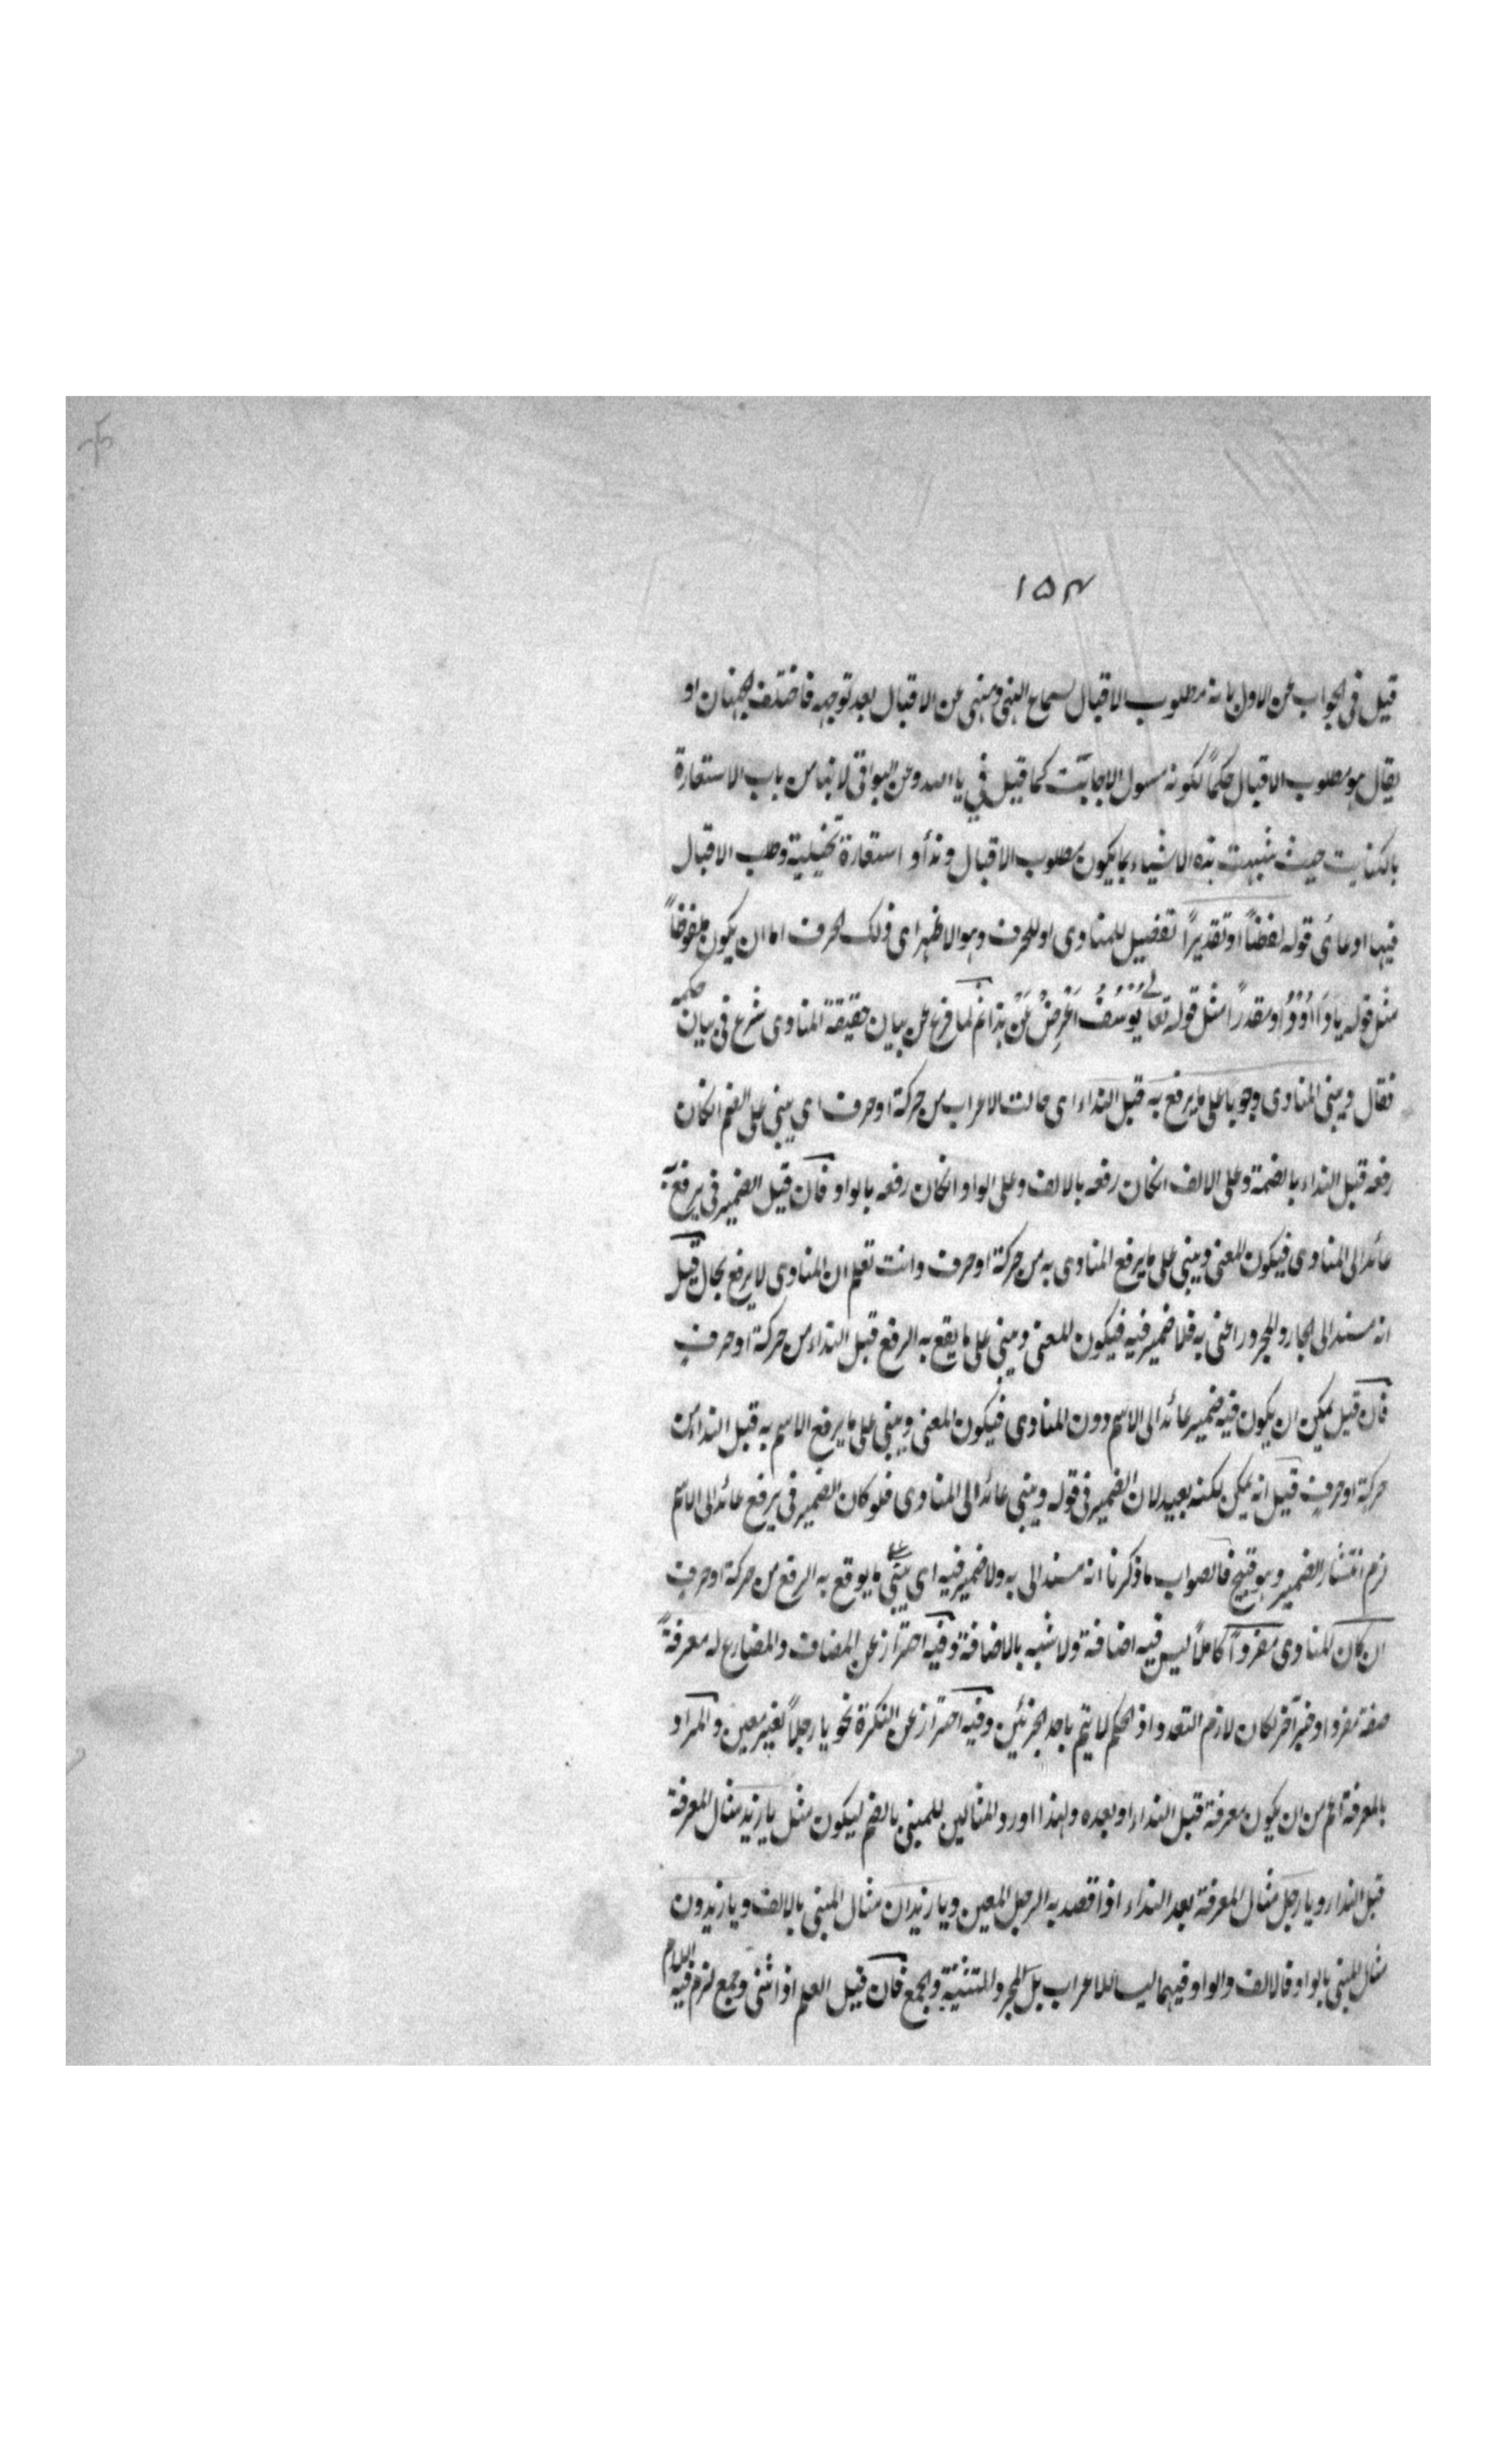 ١٥٣
قيل فى الجواب عن الاول بانه مطلوب الاقبال لسماع النهى ومنهى عن الاقبال بعد توجهه فاختلف الجهتان او
يقال هو مطلوب الاقبال حكماً لكونه مسئول الاجابت كما قيل في يا الله وعن البواقى لانها من باب الاستعارة
بالكنايت حيث شبهت هذه الاشياء بما يكون مطلوب الاقبال ونداؤ استعارة تخييلية وطلب الاقبال
فيها ادعائى قوله لفظاً او تقديراً تفصيل للمنادى او للحرف وهو الاظهر اى ذلك الحرف اما ان يكون ملفوظاً
مثل قوله يا داؤد او مقدراً مثل قوله تعالى يُوْسُفُ اَعْرِضْ عَنْ هذا ثم لما فرغ عن بيان حقيقة المنادى شرع فى بيان حكمه
فقال ويبنى المنادى وجوبا على ما يرفع به قبل النداء اى حالت الاعراب من حركة او حرف اى يبنى على الضم انكان
رفعه قبل النداء بالضمة وعلى الالف انكان رفعه بالالف وعلى الواو انكان رفعه بالواو فان قيل الضمير فى يرفع به
عائد الى المنادى فيكون المعنى ويبنى على ما يرفع المنادى به من حركة او حرف وانت تعلم ان المنادى لا يرفع بحال قيل
انه مسند الى الجار والمجرور اعنى به فلا ضمير فيه فيكون المعنى ويبنى على ما يقع به الرفع قبل النداء من حركة او حرف
فان قيل يمكن ان يكون فيه ضمير عائد الى الاسم دون المنادى فيكون المعنى ويبنى على ما يرفع الاسم به قبل النداء من
حركة او حرف قيل انه يمكن لكنه بعيد لان الضمير فى قوله ويبنى عائد الى المنادى فلو كان الضمير فى يرفع عائد الى الاسم
لزم انتشار الضمير وهو قبيح فالصواب ما ذكرنا انه مسند الى به ولا ضمير فيه اى يبنى على ما يوقع به الرفع من حركة او حرف
ان كان المنادى مفرداً كاملاً ليس فيه اضافة ولا شبه بالاضافة وفيه احتراز عن المضاف والمضارع له معرفةً
صفة مفردا او خبر آخر لكان لازم التعدد اذ الحكم لا يتم باحد الجزئين وفيه احتراز عن النكرة نحو يا رجلاً لغير معين والمراد
بالمعرفة اعم من ان يكون معرفة قبل النداء او بعده ولهذا اورد المثالين للمبنى بالضم ليكون مثل يا زيد مثال المعرفة
قبل النداء ويا رجل مثال المعرفة بعد النداء اذا قصد به الرجل المعين ويا زيدان مثال المبنى بالالف ويا زيدون
مثال المبنى بالواو فالالف والواو فيهما ليسا للاعراب بل لمجرد التثنية والجمع فان قيل العلم اذا ثنى وجمع لزم فيه اللام